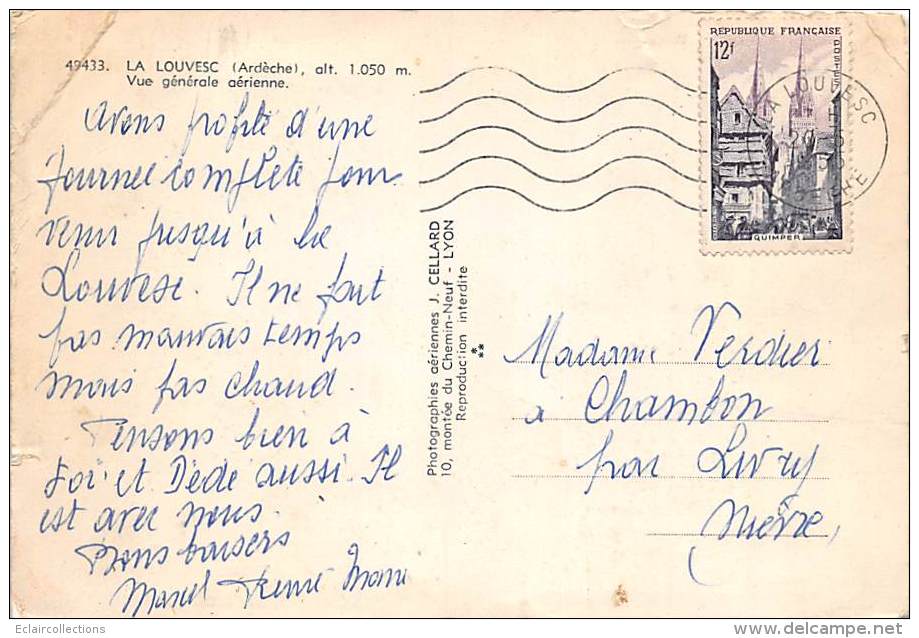 49433. LA LOUVESC (Ardèche), alt. 1.050 m.
Vue générale aérienne.
Avons profité d'une
journée complète pour
venir jusqu'à la
Louvesc. Il ne fait
pas mauvais temps
mais pas chaud.
Pensons bien à
toi et Dédé aussi. Il
est avec nous.
Bons baisers
Marcel
Photographies aériennes J. CELLARD
10, montée du Chemin-Neuf - LYON
Reproduction interdite
RÉPUBLIQUE FRANÇAISE
12F
POSTES
QUIMPER
LA LOUVESC
Madame Verdier
à Chambon
par Livry
Nièvre
Eclaircollections